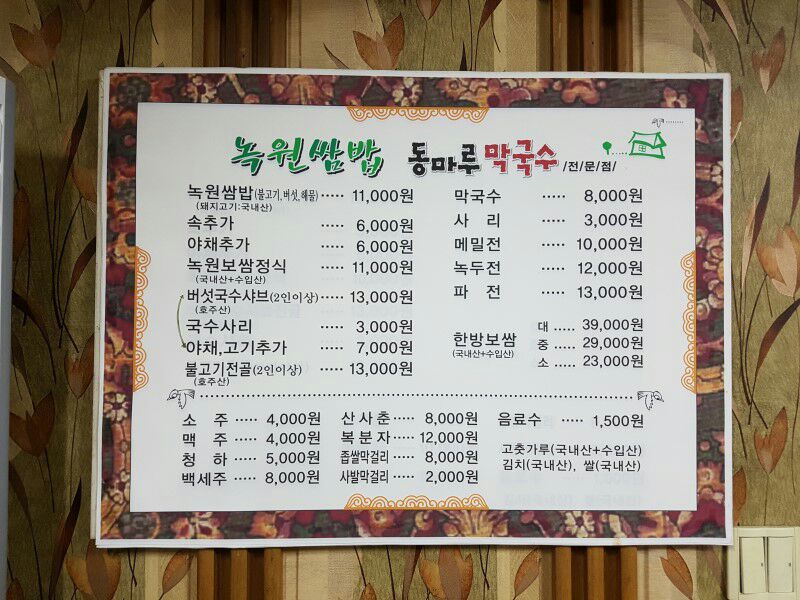 녹원쌈밥 동마루 막국수 /전/문/점/
녹원쌈밥(불고기,버섯,해물) ····· 11,000원
(돼지고기:국내산)
속추가 ····· 6,000원
야채추가 ····· 6,000원
녹원보쌈정식 ····· 11,000원
(국내산+수입산)
버섯국수샤브(2인이상) ····· 13,000원
(호주산)
국수사리 ····· 3,000원
야채,고기추가 ····· 7,000원
불고기전골(2인이상) ····· 13,000원
(호주산)
막국수 ····· 8,000원
사 리 ····· 3,000원
메밀전 ····· 10,000원
녹두전 ····· 12,000원
파 전 ····· 13,000원
한방보쌈 대 ····· 39,000원
(국내산+수입산) 중 ····· 29,000원
소 ····· 23,000원
소 주 ····· 4,000원
맥 주 ····· 4,000원
청 하 ····· 5,000원
백세주 ····· 8,000원
산사춘 ····· 8,000원
복분자 ····· 12,000원
좁쌀막걸리 ····· 8,000원
사발막걸리 ····· 2,000원
음료수 ····· 1,500원
고춧가루(국내산+수입산)
김치(국내산), 쌀(국내산)